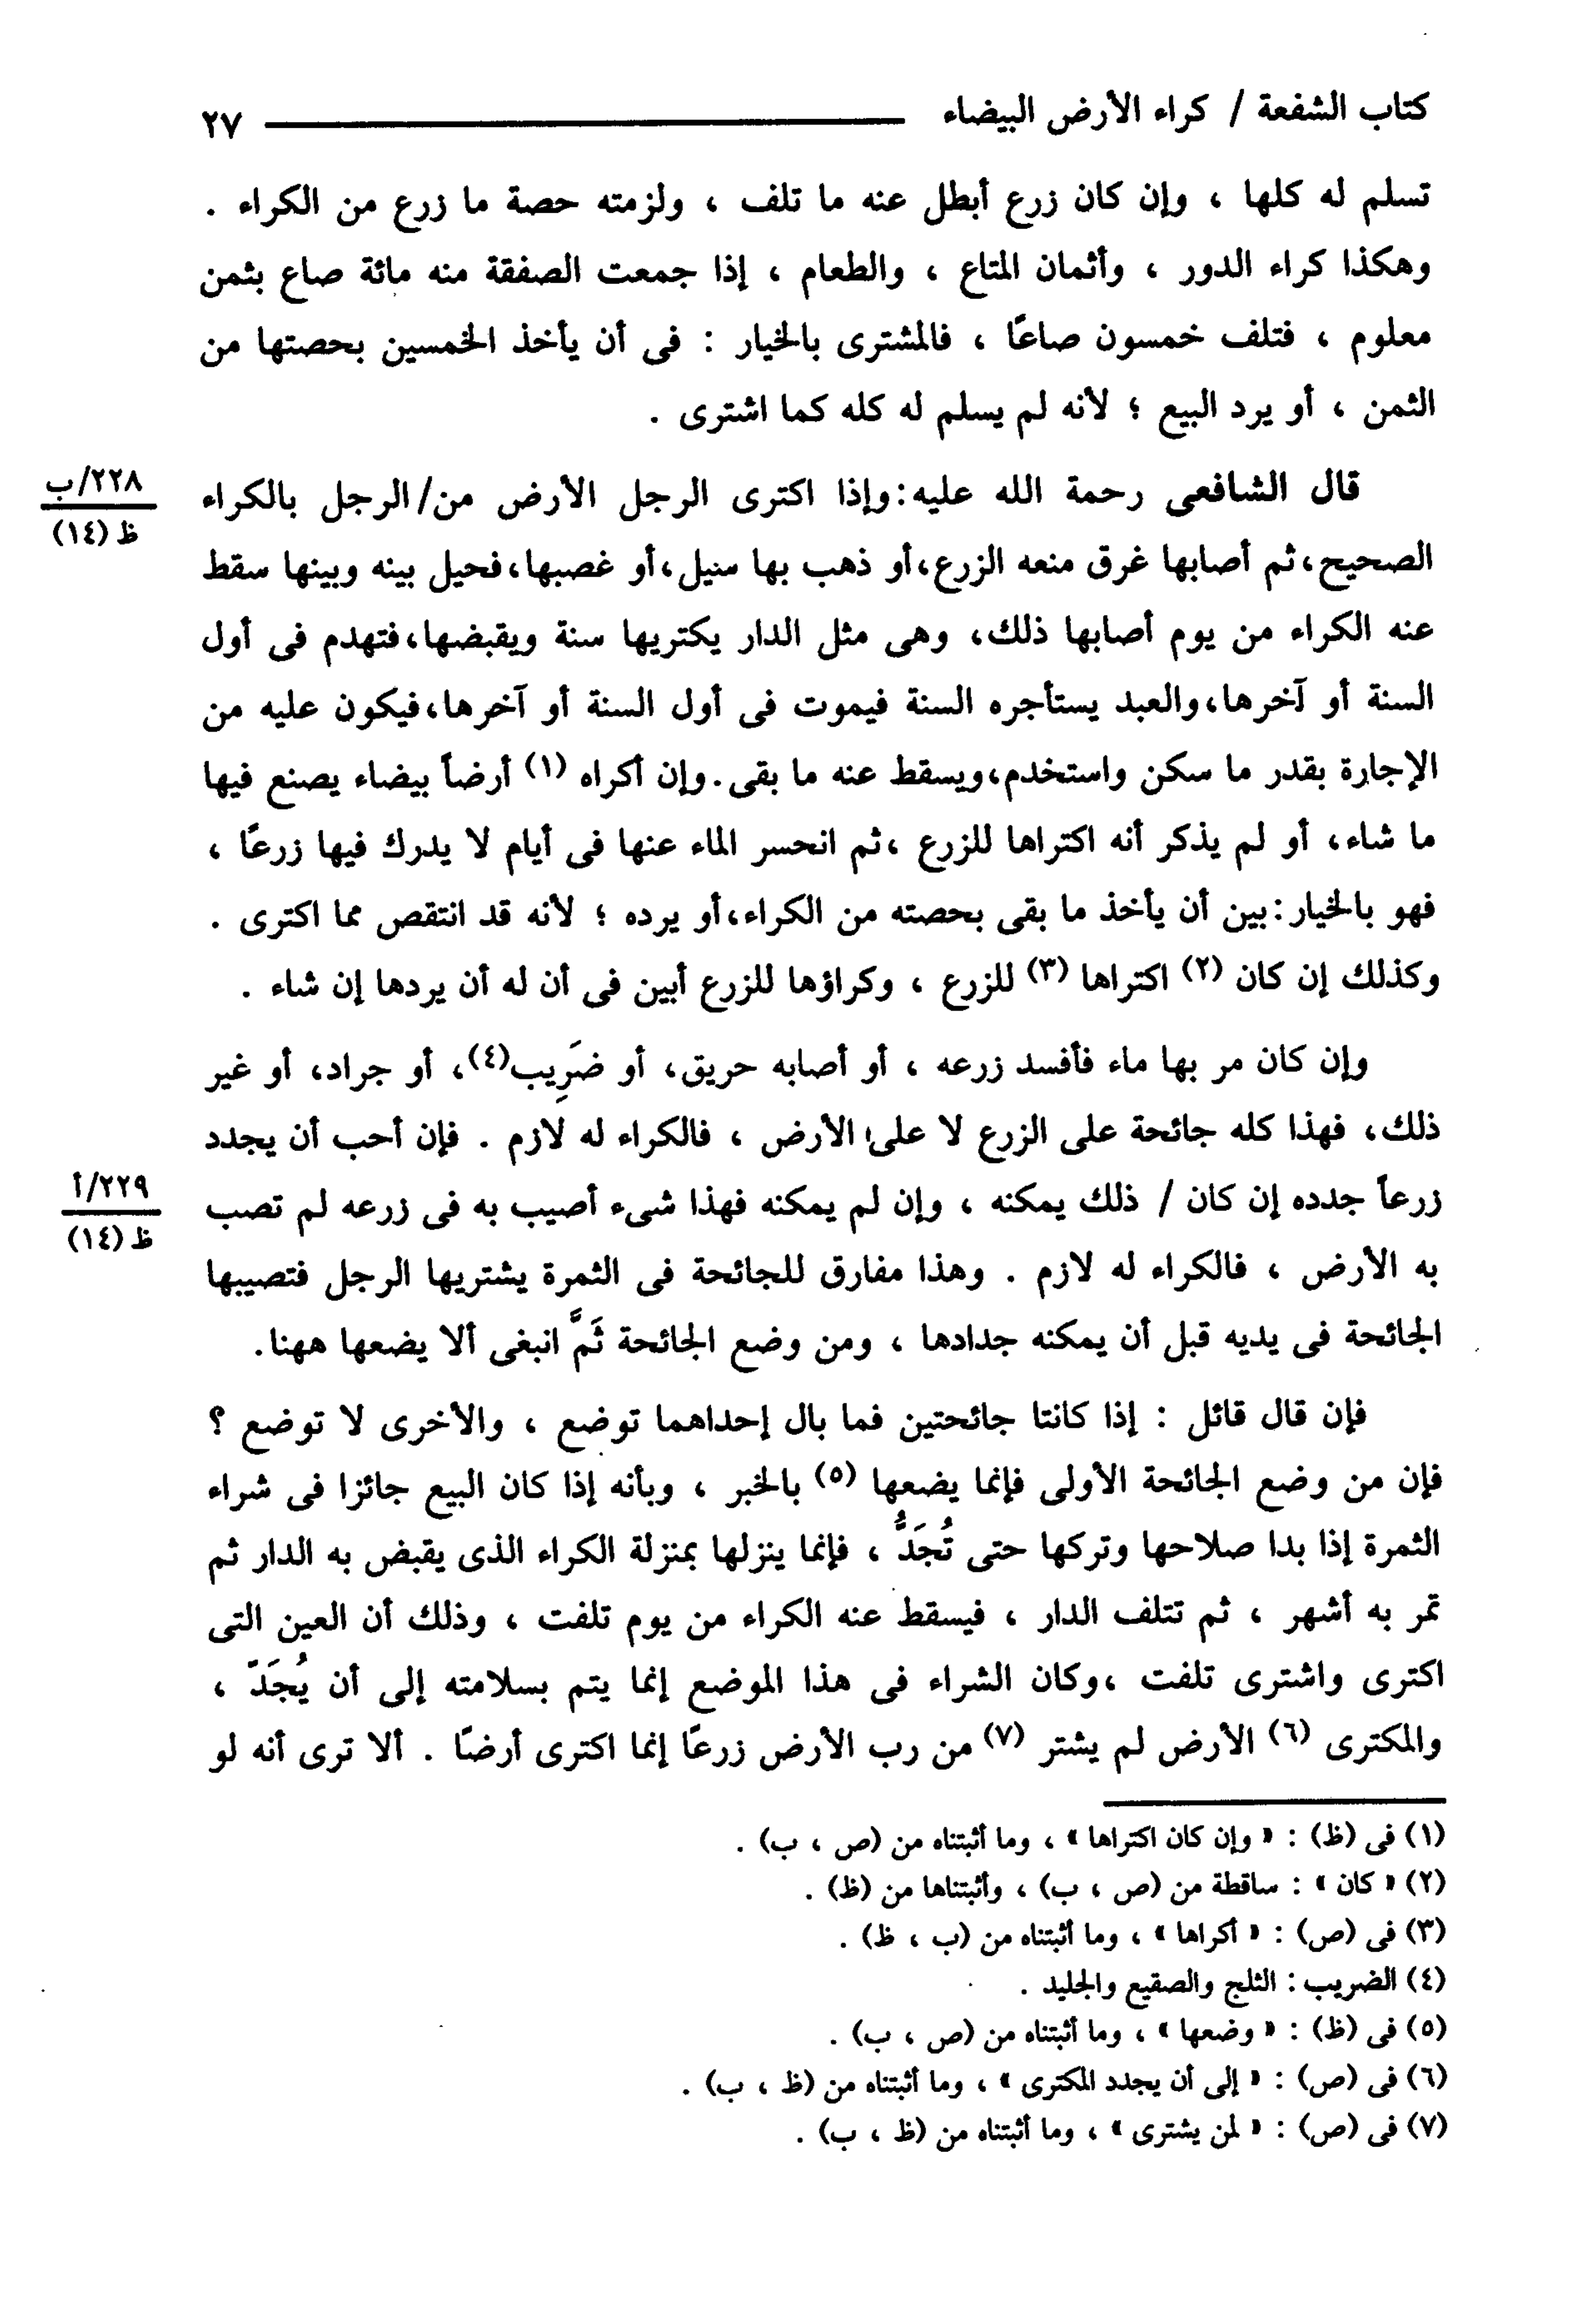 كتاب الشفعة / كراء الأرض البيضاء ــــــــــ ٢٧
تسلم له كلها ، وإن كان زرع أبطل عنه ما تلف ، ولزمته حصة ما زرع من الكراء .
وهكذا كراء الدور ، وأثمان المتاع ، والطعام ، إذا جمعت الصفقة منه مائة صاع بثمن
معلوم ، فتلف خمسون صاعًا ، فالمشترى بالخيار : فى أن يأخذ الخمسين بحصتها من
الثمن ، أو يرد البيع ؛ لأنه لم يسلم له كله كما اشترى .
قال الشافعى رحمة الله عليه:وإذا اكترى الرجل الأرض من/الرجل بالكراء
٢٢٨/ب
ظ (١٤)
الصحيح،ثم أصابها غرق منعه الزرع،أو ذهب بها سيل،أو غصبها،فحيل بينه وبينها سقط
عنه الكراء من يوم أصابها ذلك، وهى مثل الدار يكتريها سنة ويقبضها،فتهدم فى أول
السنة أو آخرها،والعبد يستأجره السنة فيموت فى أول السنة أو آخرها،فيكون عليه من
الإجارة بقدر ما سكن واستخدم،ويسقط عنه ما بقى.وإن أكراه (١) أرضاً بيضاء يصنع فيها
ما شاء، أو لم يذكر أنه اكتراها للزرع ،ثم انحسر الماء عنها فى أيام لا يدرك فيها زرعًا ،
فهو بالخيار:بين أن يأخذ ما بقى بحصته من الكراء،أو يرده ؛ لأنه قد انتقص مما اكترى .
وكذلك إن كان (٢) اكتراها (٣) للزرع ، وكراؤها للزرع أبين فى أن له أن يردها إن شاء .
وإن كان مر بها ماء فأفسد زرعه ، أو أصابه حريق، أو ضَرِيب(٤)، أو جراد، أو غير
ذلك، فهذا كله جائحة على الزرع لا على الأرض ، فالكراء له لازم . فإن أحب أن يجدد
زرعاً جدده إن كان / ذلك يمكنه ، وإن لم يمكنه فهذا شىء أصيب به فى زرعه لم تصب
٢٢٩/أ
ظ (١٤)
به الأرض ، فالكراء له لازم . وهذا مفارق للجائحة فى الثمرة يشتريها الرجل فتصيبها
الجائحة فى يديه قبل أن يمكنه جدادها ، ومن وضع الجائحة ثَمَّ انبغى ألا يضعها ههنا.
فإن قال قائل : إذا كانتا جائحتين فما بال إحداهما توضع ، والأخرى لا توضع ؟
فإن من وضع الجائحة الأولى فإنما يضعها (٥) بالخبر ، وبأنه إذا كان البيع جائزا فى شراء
الثمرة إذا بدا صلاحها وتركها حتى تُجَدُّ ، فإنما ينزلها بمنزلة الكراء الذى يقبض به الدار ثم
تمر به أشهر ، ثم تتلف الدار ، فيسقط عنه الكراء من يوم تلفت ، وذلك أن العين التى
اكترى واشترى تلفت ،وكان الشراء فى هذا الموضع إنما يتم بسلامته إلى أن يُجَدّ ،
والمكترى (٦) الأرض لم يشتر (٧) من رب الأرض زرعًا إنما اكترى أرضًا . ألا ترى أنه لو
(١) فى (ظ) : « وإن كان اكتراها » ، وما أثبتناه من (ص ، ب) .
(٢) « كان » : ساقطة من (ص ، ب) ، وأثبتناها من (ظ) .
(٣) فى (ص) : « أكراها » ، وما أثبتناه من (ب ، ظ) .
(٤) الضريب : الثلج والصقيع والجليد .
(٥) فى (ظ) : « وضعها » ، وما أثبتناه من (ص ، ب) .
(٦) فى (ص) : « إلى أن يجدد المكترى » ، وما أثبتناه من (ظ ، ب) .
(٧) فى (ص) : « لمن يشترى » ، وما أثبتناه من (ظ ، ب) .